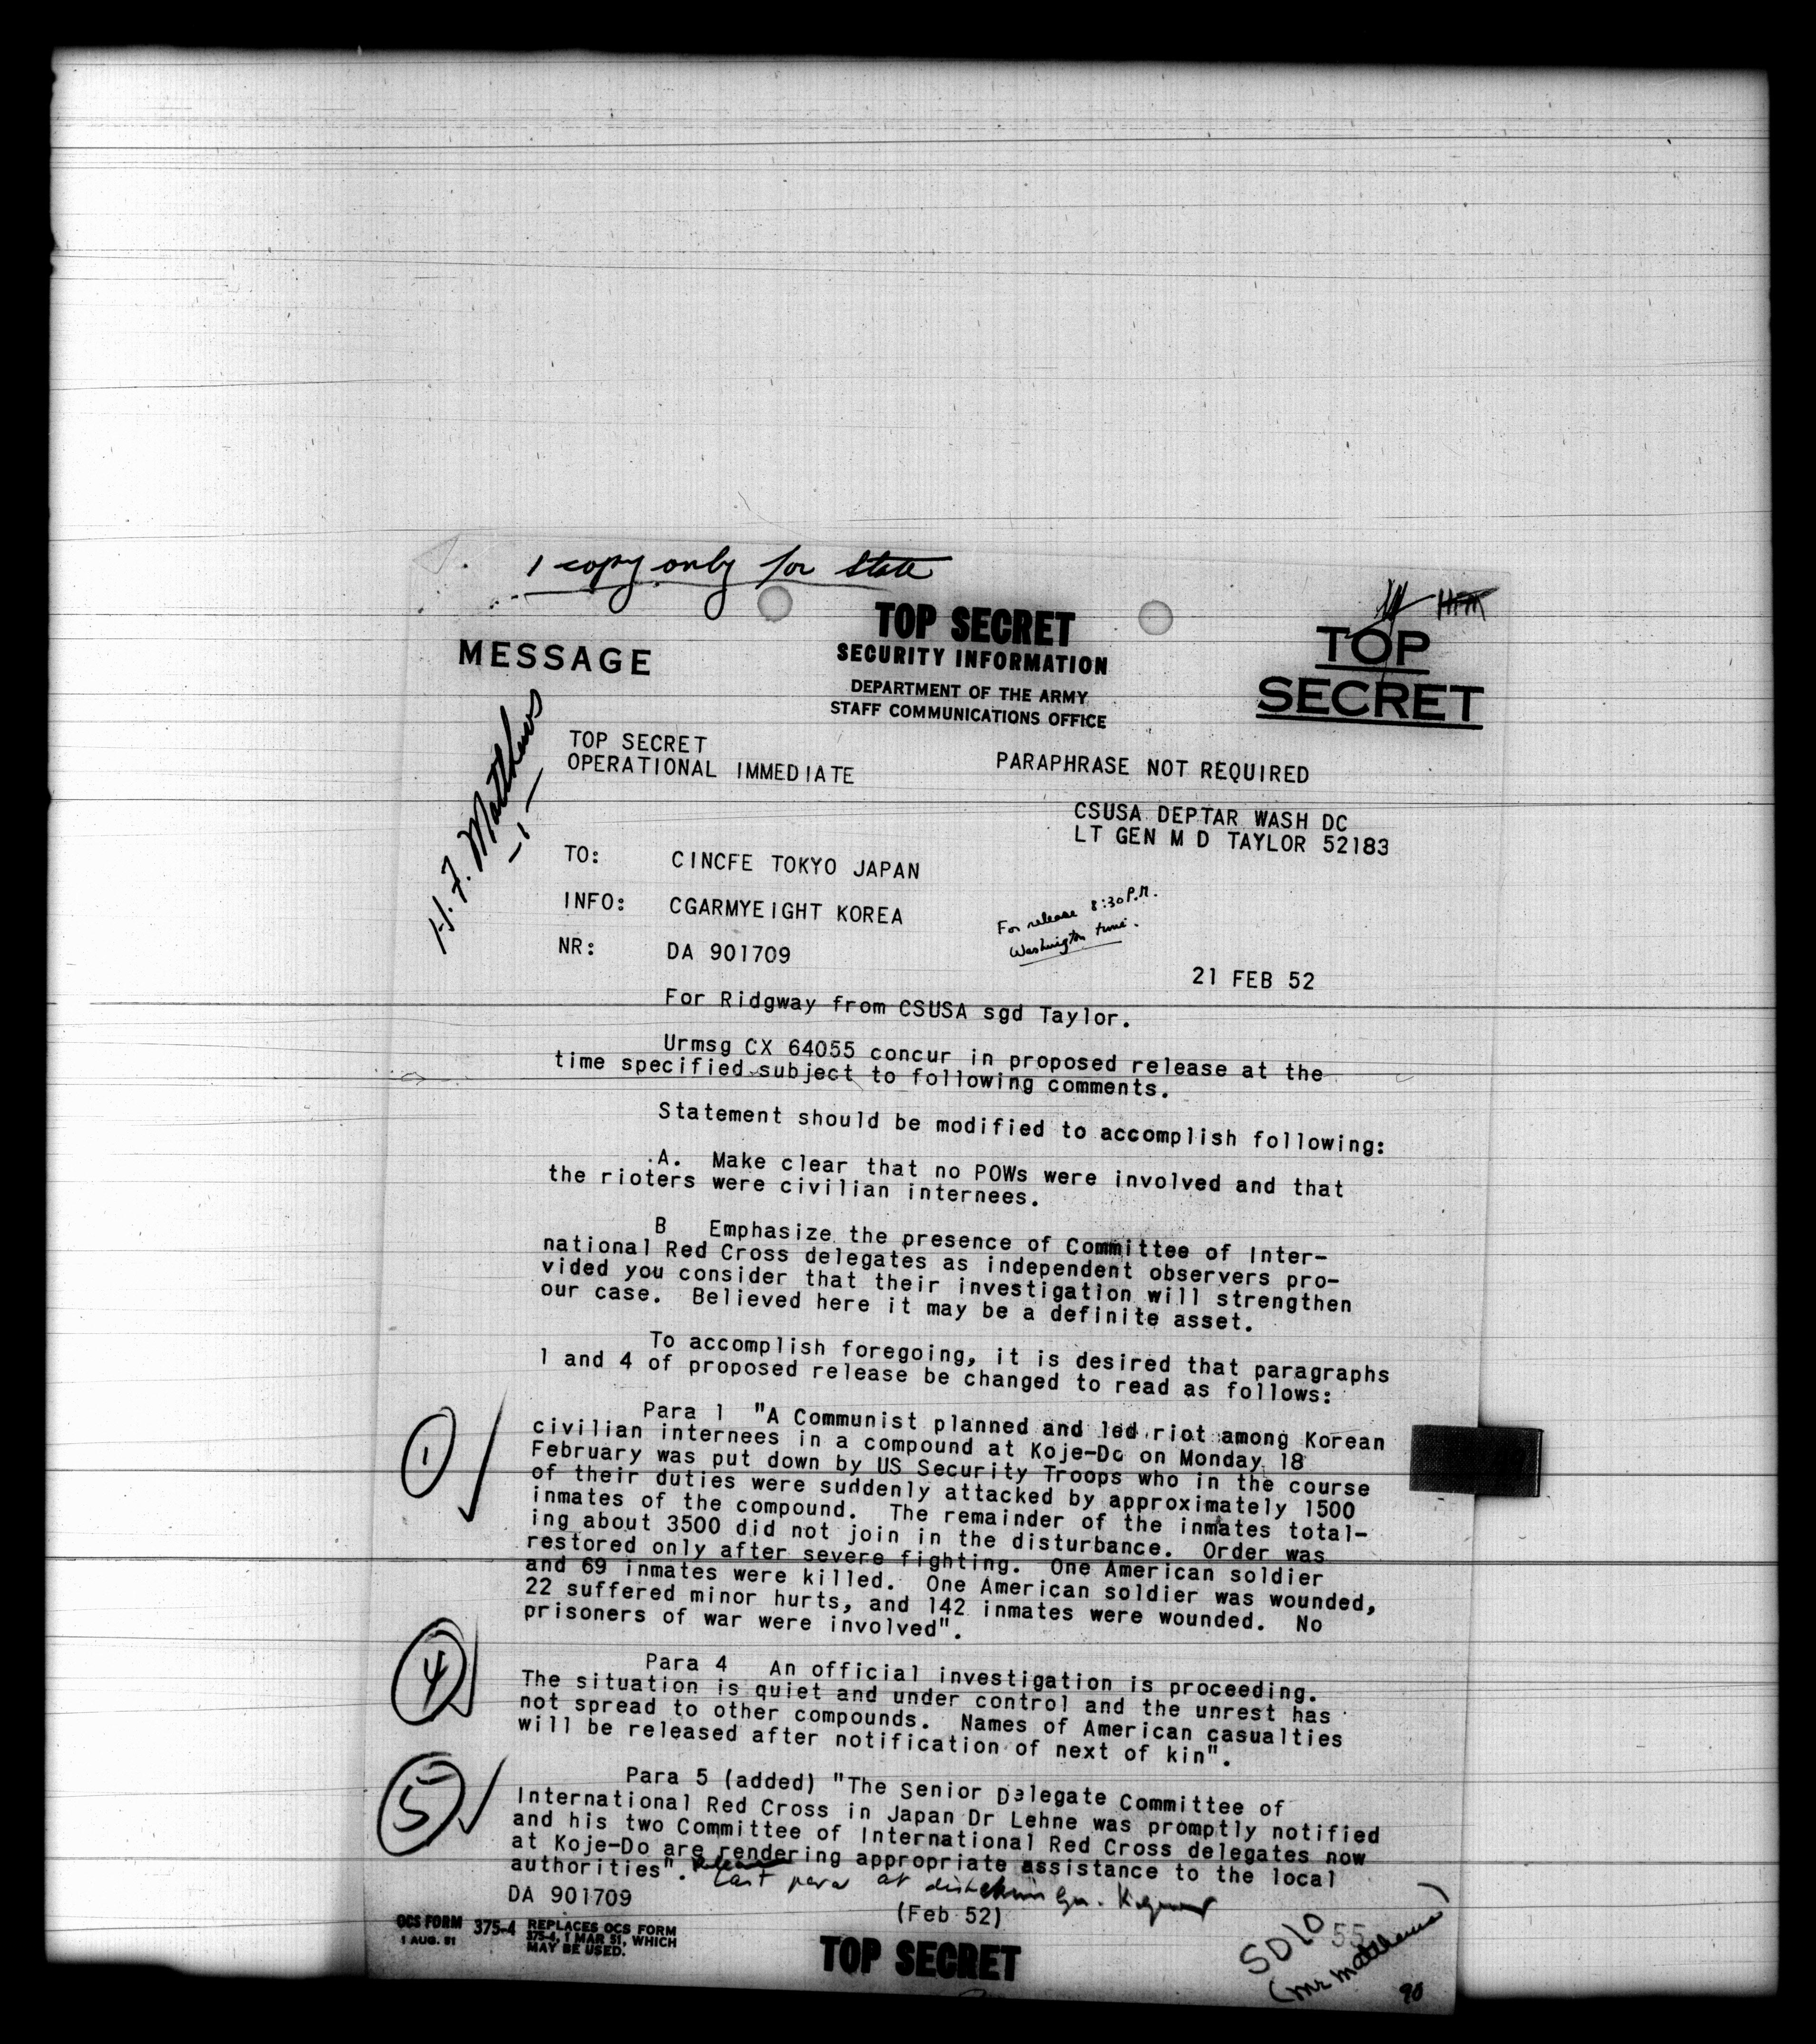 1 copy only for State
TOP SECRET
SECURITY INFORMATION
MESSAGE
TOP
SECRET
DEPARTMENT OF THE ARMY
STAFF COMMUNICATIONS OFFICE
H. F. Matthews
-1-
TOP SECRET
OPERATIONAL IMMEDIATE
PARAPHRASE NOT REQUIRED
CSUSA DEPTAR WASH DC
LT GEN M D TAYLOR 52183
TO: CINCFE TOKYO JAPAN
INFO: CGARMYEIGHT KOREA
For release 8:30 P.M.
Washington time.
NR: DA 901709
21 FEB 52
For Ridgway from CSUSA sgd Taylor.
Urmsg CX 64055 concur in proposed release at the
time specified subject to following comments.
Statement should be modified to accomplish following:
A. Make clear that no POWs were involved and that
the rioters were civilian internees.
B Emphasize the presence of Committee of Inter-
national Red Cross delegates as independent observers pro-
vided you consider that their investigation will strengthen
our case. Believed here it may be a definite asset.
To accomplish foregoing, it is desired that paragraphs
1 and 4 of proposed release be changed to read as follows:
1
Para 1 "A Communist planned and led riot among Korean
civilian internees in a compound at Koje-Do on Monday 18
February was put down by US Security Troops who in the course
of their duties were suddenly attacked by approximately 1500
inmates of the compound. The remainder of the inmates total-
ing about 3500 did not join in the disturbance. Order was
restored only after severe fighting. One American soldier
and 69 inmates were killed. One American soldier was wounded,
22 suffered minor hurts, and 142 inmates were wounded. No
prisoners of war were involved".
4
Para 4 An official investigation is proceeding.
The situation is quiet and under control and the unrest has
not spread to other compounds. Names of American casualties
will be released after notification of next of kin".
5
Para 5 (added) "The Senior Delegate Committee of
International Red Cross in Japan Dr Lehne was promptly notified
and his two Committee of International Red Cross delegates now
at Koje-Do are rendering appropriate assistance to the local
authorities".
Last para at
DA 901709
(Feb 52)
OCS FORM 375-4
1 AUG. 51
REPLACES OCS FORM
375-4, 1 MAR 51, WHICH
MAY BE USED.
TOP SECRET
55
(Mr Matthews)
90